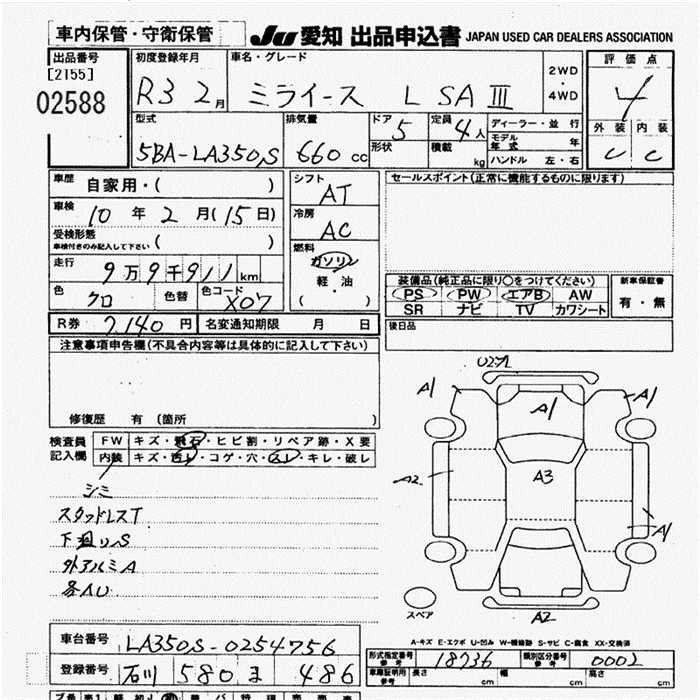 車内保管・守衛保管
JU 愛知 出品申込書 JAPAN USED CAR DEALERS ASSOCIATION
出品番号
[2155]
02588
初度登録年月
R3 2月
車名・グレード
ミライース L SA Ⅲ
2WD
・
4WD
評価点
4
外装 内装
C C
型式
5BA-LA350S
排気量
660 cc
ドア 5
形状
定員 4人
積載 kg
ディーラー・並行
モデル年式 年
ハンドル 左・右
車歴 自家用・( )
車検 10年2月(15日)
受検形態
車検付きのみ記入して下さい ( )
走行 9万9千911km
色 クロ 色替 色コード X07
シフト
AT
冷房
AC
燃料
ガソリン
軽・油
( )
セールスポイント(正常に機能するものに限ります)
装備品(純正品に限り○をつけてください)
PS PW エアB AW
SR ナビ TV カワシート
新車保証書
有・無
後日品
R券 7,140円 名変通知期限 月 日
注意事項申告欄(不具合内容等は具体的に記入して下さい)
修復歴 有 (箇所
検査員
記入欄
FW キズ・飛石・ヒビ割・リペア跡・X要
内装 キズ・汚レ・コゲ・穴・スレ・キレ・破レ
シミ
スタッドレスT
下廻りS
外アルミA
各AU
A1
A1
A1
A2
A3
A1
A2
スペア
A-キズ E-エクボ U-凹み W-補修跡 S-サビ C-腐食 XX-交換済
車台番号 LA350S-0254756
登録番号 石川 580 ま 486
形式指定番号
参考
18736
類別区分番号
参考
0002
車庫証明用
参考
長さ cm 幅 cm 高さ cm